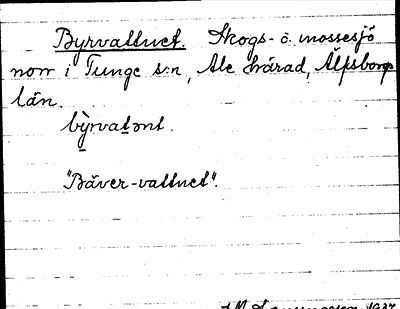 Byrvattnet. Skogs- o. mossesjö
norr i Tunge s:n, Ale härad, Älfsborgs
län.
by̱rvatənt.
"Bäver-vattnet".
1937